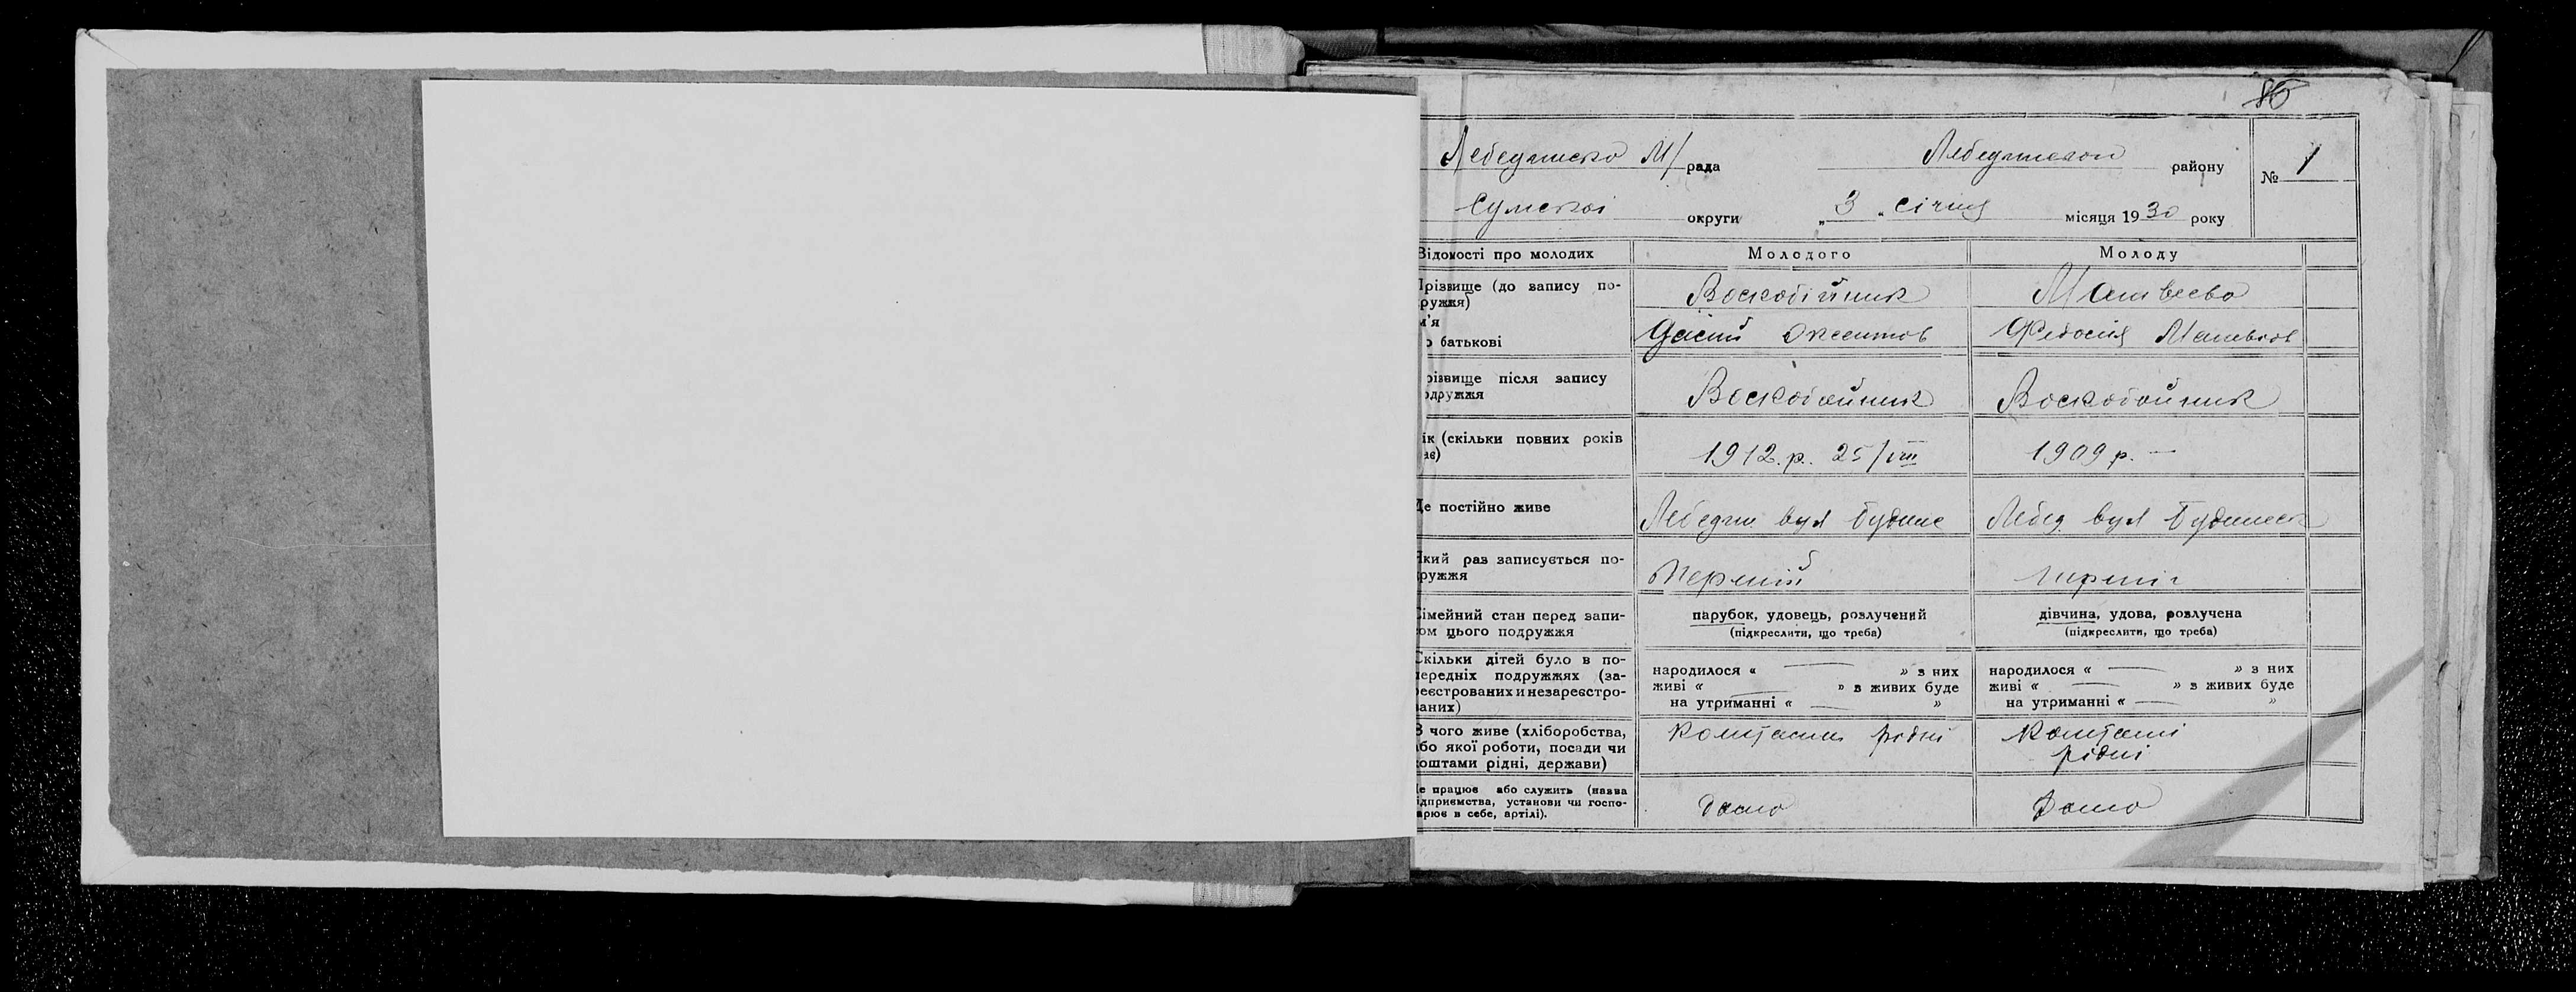 86
Лебединсько М/ рада Лебединськой району № 1
Сумськоі округи „ 3 „ січня місяця 1930 року
Відомості про молодих Молодого Молоду
Прізвище (до запису по-
ружжя) Воскобійник Матвеєва
м'я
о батькові Оксентов Федосія Матвієв
різвище після запису
одружжя Воскобойник Воскобойник
ік (скільки повних років
ає) 1912.р. 25/VIII 1909 р. —
Де постійно живе Лебедин. вул Будине Лебед вул Будинск
Який раз записується по-
ружжя Перший перший
Сімейний стан перед запи-
ом цього подружжя парубок, удовець, розлучений дівчина, удова, розлучена
(підкреслити, що треба) (підкреслити, що треба)
Скільки дітей було в по-
передніх подружжях (за-
реєстрованих и незареєстро-
ваних) народилося « — » з них народилося « — » з них
живі « — » в живих буде живі « — » в живих буде
на утриманні « — » на утриманні « — »
З чого живе (хліборобства,
або якої роботи, посади чи
коштами рідні, держави) коштами рідні коштами
рідні
е працює або служить (назва
ідприємства, установи чи госпо-
арює в себе, артілі). Дома Дома